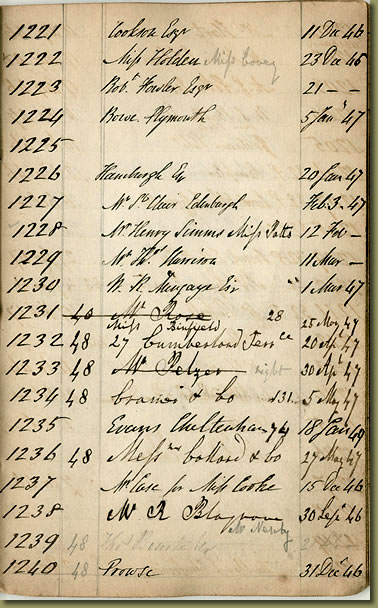 1221 Cookson Esqr 11 Dec 46
1222 Miss Holden Miss Covey 23 Dec 46
1223 Robt. Fowler Esqr 21 – –
1224 Rowe. Plymouth 5 Jany 47
1225
1226 Hamburgh Ex 20 Jan 47
1227 Mr St Clair Edinburgh Feb 3. 47
1228 Mr Henry Simms Miss Potts 12 Feb –
1229 Mr Thos. Harrison 11 Mar –
1230 W. H. Esr 1 Mar 47
1231 40 Mr Rose 28 25 Nov 47
Miss Binfield
1232 48 27 Cumberland Terrce 20 Apl 47
1233 48 Mr Pelzer right 30 Apl 47
1234 48 Cramer & Co 131. 5 May 47
1235 Evans Cheltenham 74 18 Jan 49
1236 48 Messrs Collard & Co 27 May 47
1237 Mr Case for Miss Cooke 15 Dec 46
1238 Mr R Blagrove 30 Sep 46
Mr Newby
1239 48
1240 48 Prowse 31 Dec 46